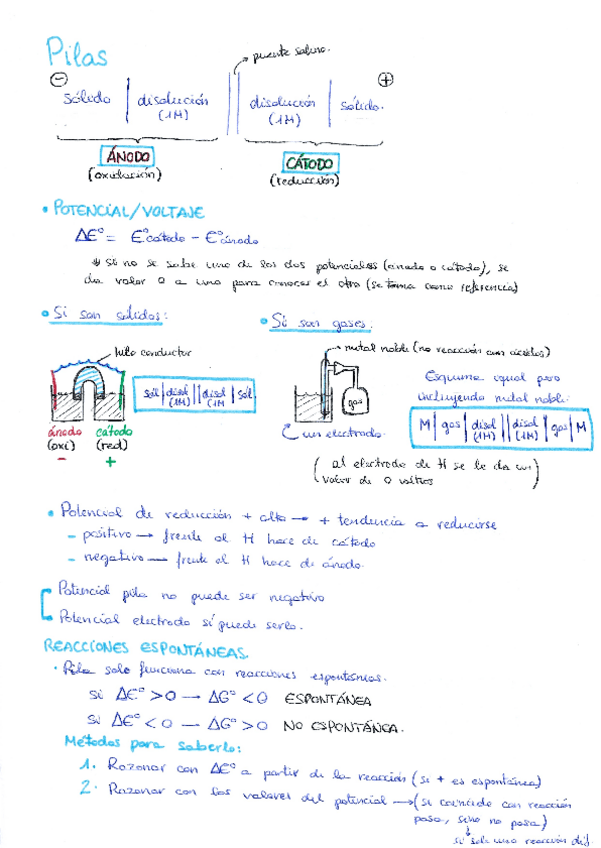 Pilas
puente salino.
⊖ ⊕
sólido | disolución (1M) || disolución (1M) | sólido.
ÁNODO
(oxidación)
CÁTODO
(reducción)
• POTENCIAL/VOLTAJE
ΔE° = E°cátodo - E°ánodo
* Si no se sabe uno de los dos potenciales (ánodo o cátodo), se
da valor 0 a uno para conocer el otro (se toma como referencia)
• Si son sólidos:
hilo conductor
sól | disol (1M) || disol (1M) | sól
ánodo (oxi) -
cátodo (red) +
• Si son gases.
metal noble (no reacciona con ácidos)
gas
un electrodo.
Esquema igual pero
incluyendo metal noble:
M | gas | disol (1M) || disol (1M) | gas | M
(al electrodo de H se le da un
valor de 0 voltios)
• Potencial de reducción + alto → + tendencia a reducirse
- positivo → frente al H hace de cátodo
- negativo → frente al H hace de ánodo.
Potencial pila no puede ser negativo
Potencial electrodo sí puede serlo.
REACCIONES ESPONTÁNEAS.
• Pila solo funciona con reacciones espontáneas.
si ΔE° > 0 → ΔG° < 0 ESPONTÁNEA
si ΔE° < 0 → ΔG° > 0 NO ESPONTÁNEA.
Métodos para saberlo:
1. Razonar con ΔE° a partir de la reacción (si + es espontánea)
2. Razonar con los valores del potencial → (si coincide con reacción
pasa, sino no pasa)
si sale una reacción dif.